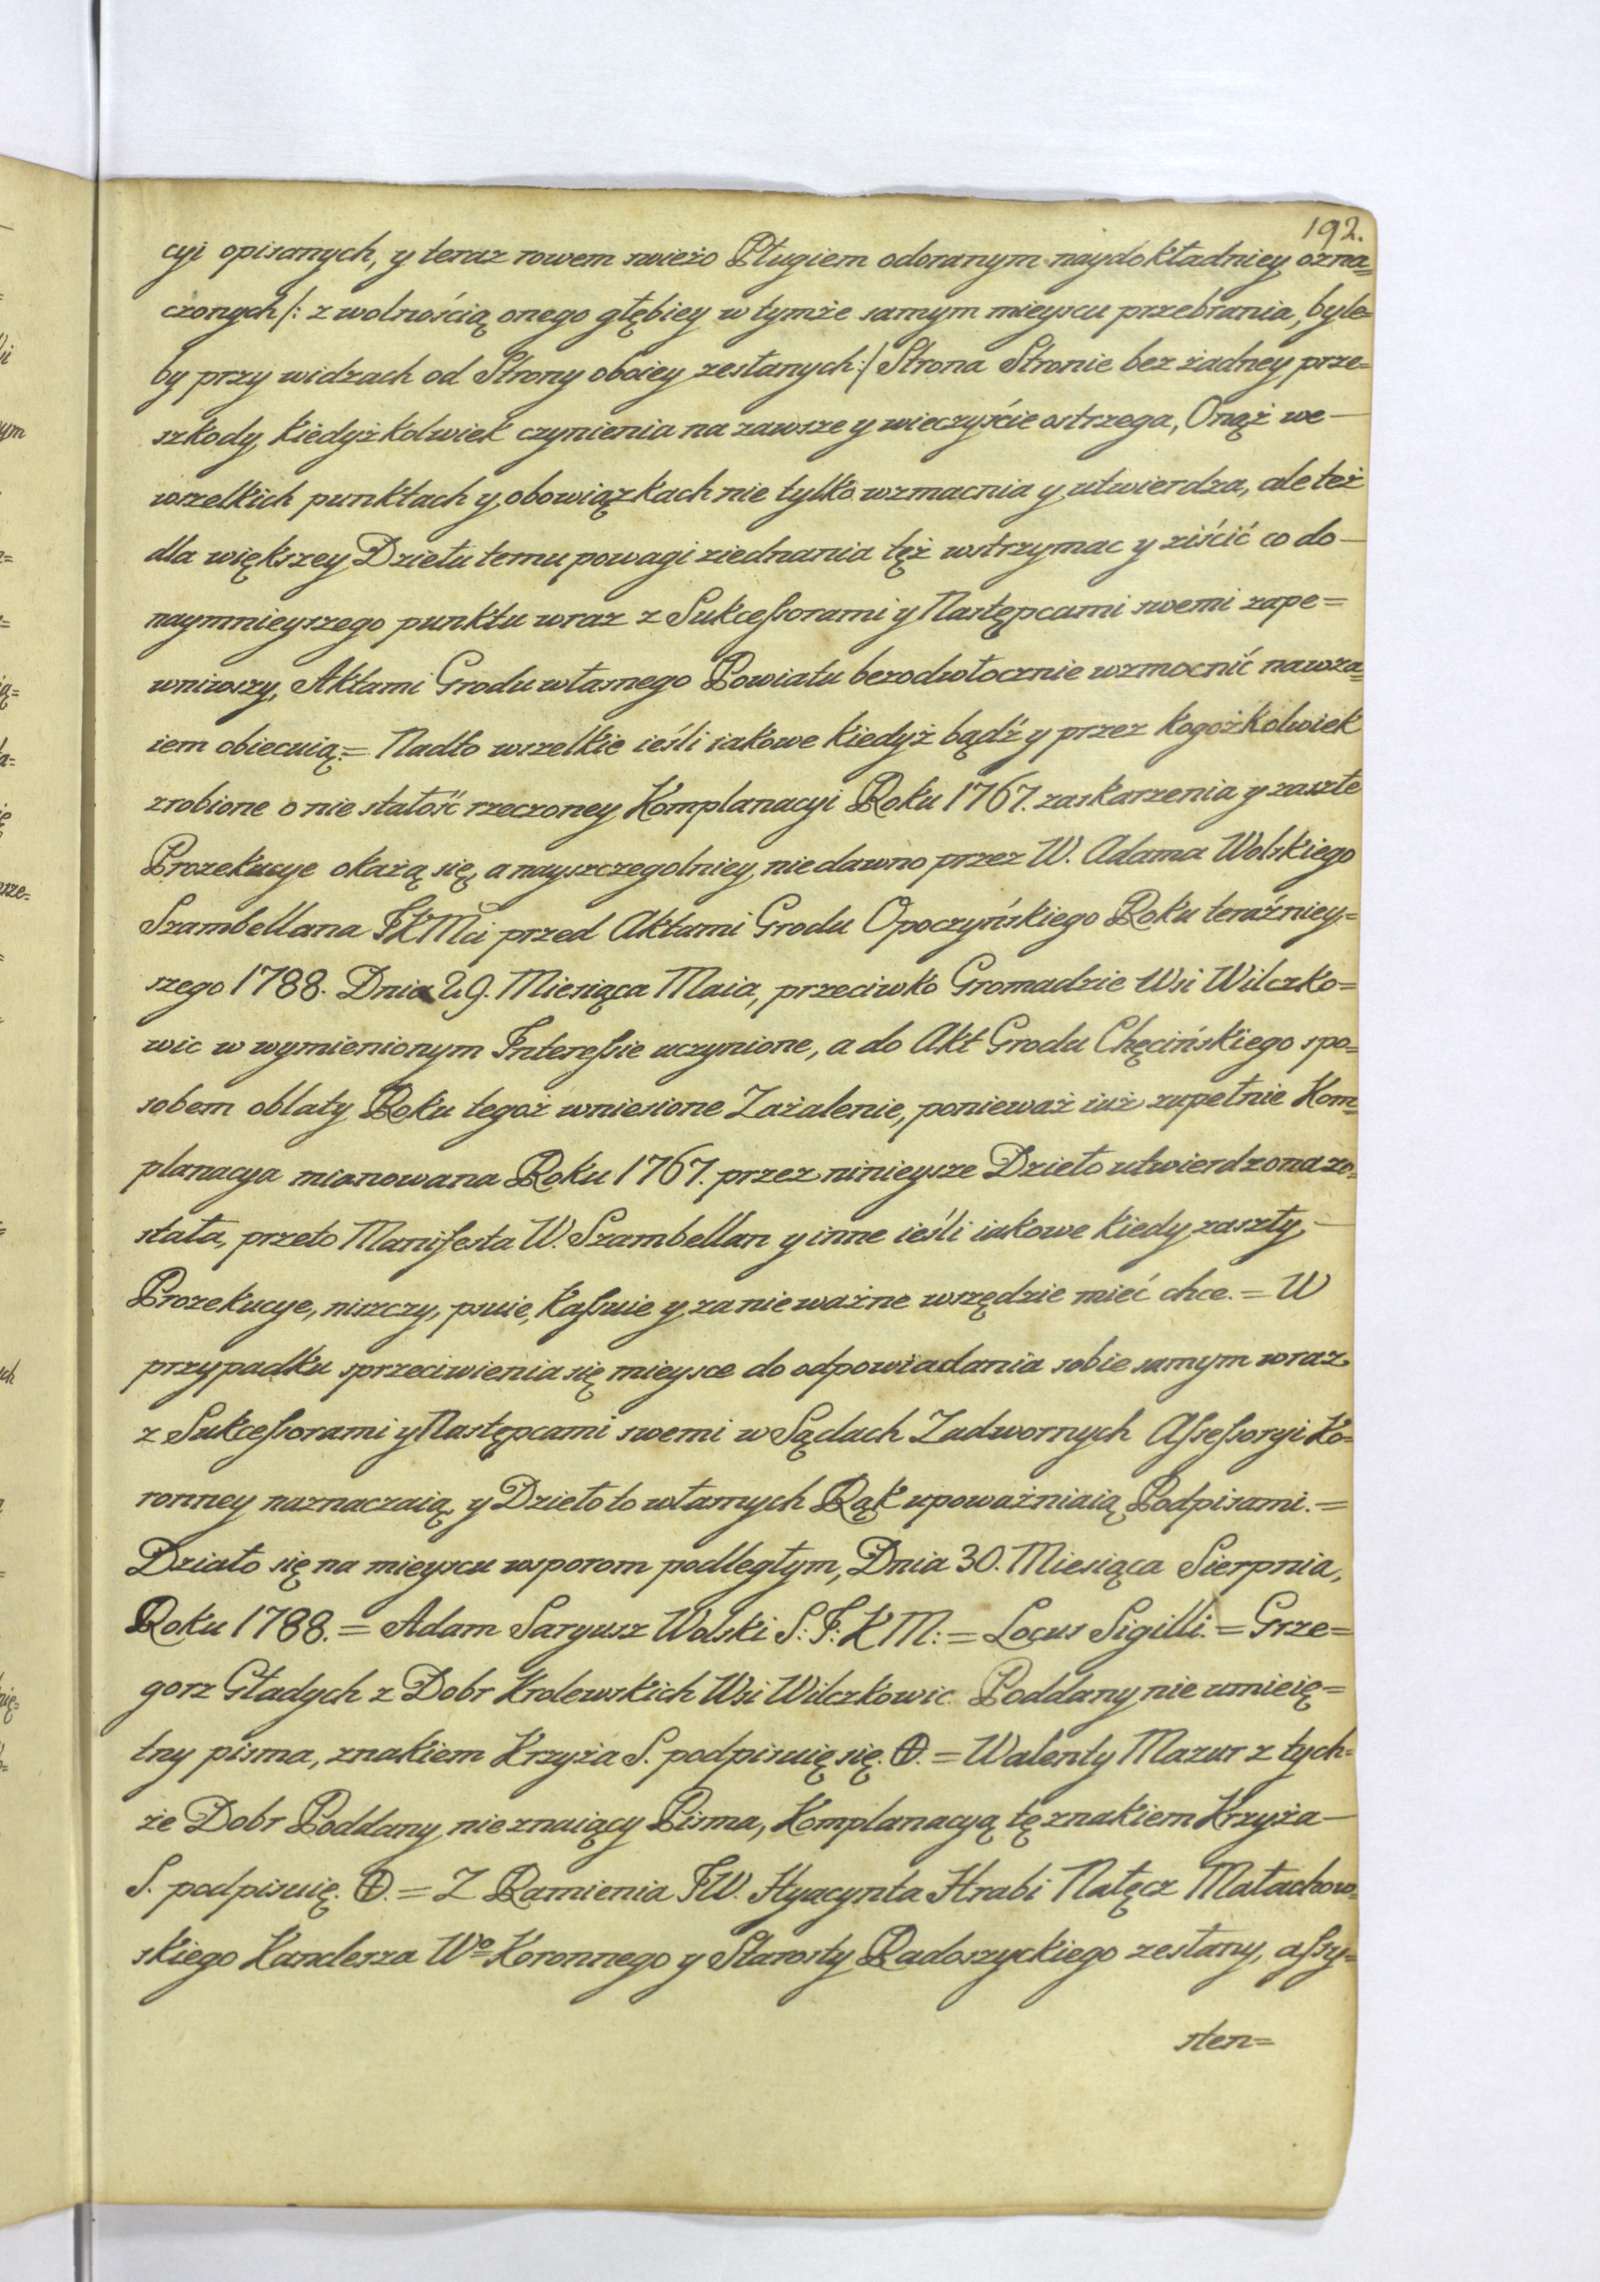 192.
cyi opisanych, y teraz rowem swieżo Pługiem odoranym naydokładniey ozna=
czonych /: z wolnością onego głębiey w tymże samym mieyscu przebrania, byle=
by przy widzach od Strony oboiey zesłanych :/ Strona Stronie bez żadney prze=
szkody, kiedyżkolwiek czynienia na zawsze y wieczyście ostrzega, Onąż we —
wszelkich punktach y obowiązkach nie tylko wzmacnia y utwierdza, ale też
dla większey Dziełu temu powagi ziednania tęż wstrzymac y ziścić co do —
naymnieyszego punktu wraz z Sukceſsorami y Następcami swemi zape=
wniwszy, Aktami Grodu własnego Powiatu bezodwłocznie wzmocnić nawza=
iem obiecuią. = Nadto wszelkie ieśli iakowe kiedyż bądź y przez kogożkolwiek
zrobione o nie stałość rzeczoney Komplanacyi Roku 1767. zaskarzenia y zaszłe
Prozekucye okażą się, a nayszczegolniey, nie dawno przez W. Adama Wolskiego
Szambellana JKMci przed Aktami Grodu Opoczyńskiego Roku teraźniey=
szego 1788. Dnia 29. Miesiąca Maia, przeciwko Gromadzie Wsi Wilczko=
wic w wymienionym Intereſsie uczynione, a do Akt Grodu Chęcińskiego spo=
sobem oblaty Roku tegoż wniesione Zażalenie, ponieważ iuż zupełnie Kom=
planacya mianowana Roku 1767. przez ninieysze Dzieło utwierdzona zo=
stała, przeto Manifesta W. Szambellan y inne ieśli iakowe kiedy zaszły —
Prozekucye, niszczy, psuie, kaſsuie y za nie ważne wszędzie mieć chce. = W
przypadku sprzeciwienia się mieysce do odpowiadania sobie samym wraz
z Sukceſsorami y Następcami swemi w Sądach Zadwornych Aſseſsoryi Ko=
ronney naznaczaią, y Dzieło to własnych Rąk upoważniaią Podpisami. =
Działo się na mieyscu w sporom podległym, Dnia 30. Miesiąca Sierpnia,
Roku 1788. = Adam Saryusz Wolski S: J: K M: = Locus Sigilli. = Grze=
gorz Gładych z Dobr Krolewskich Wsi Wilczkowic Poddany nie umieię=
tny pisma, znakiem Krzyża S. podpisuię się. ⊕. = Walenty Mazur z tych=
że Dobr Poddany nie znaiący Pisma, Komplanacyą tę znakiem Krzyża —
S. podpisuię. ⊕. = Z Ramienia JW. Hyacynta Hrabi Nałęcz Małachow=
skiego Kanclerza Wo Koronnego y Starosty Radoszyckiego zesłany, aſsy=
sten=